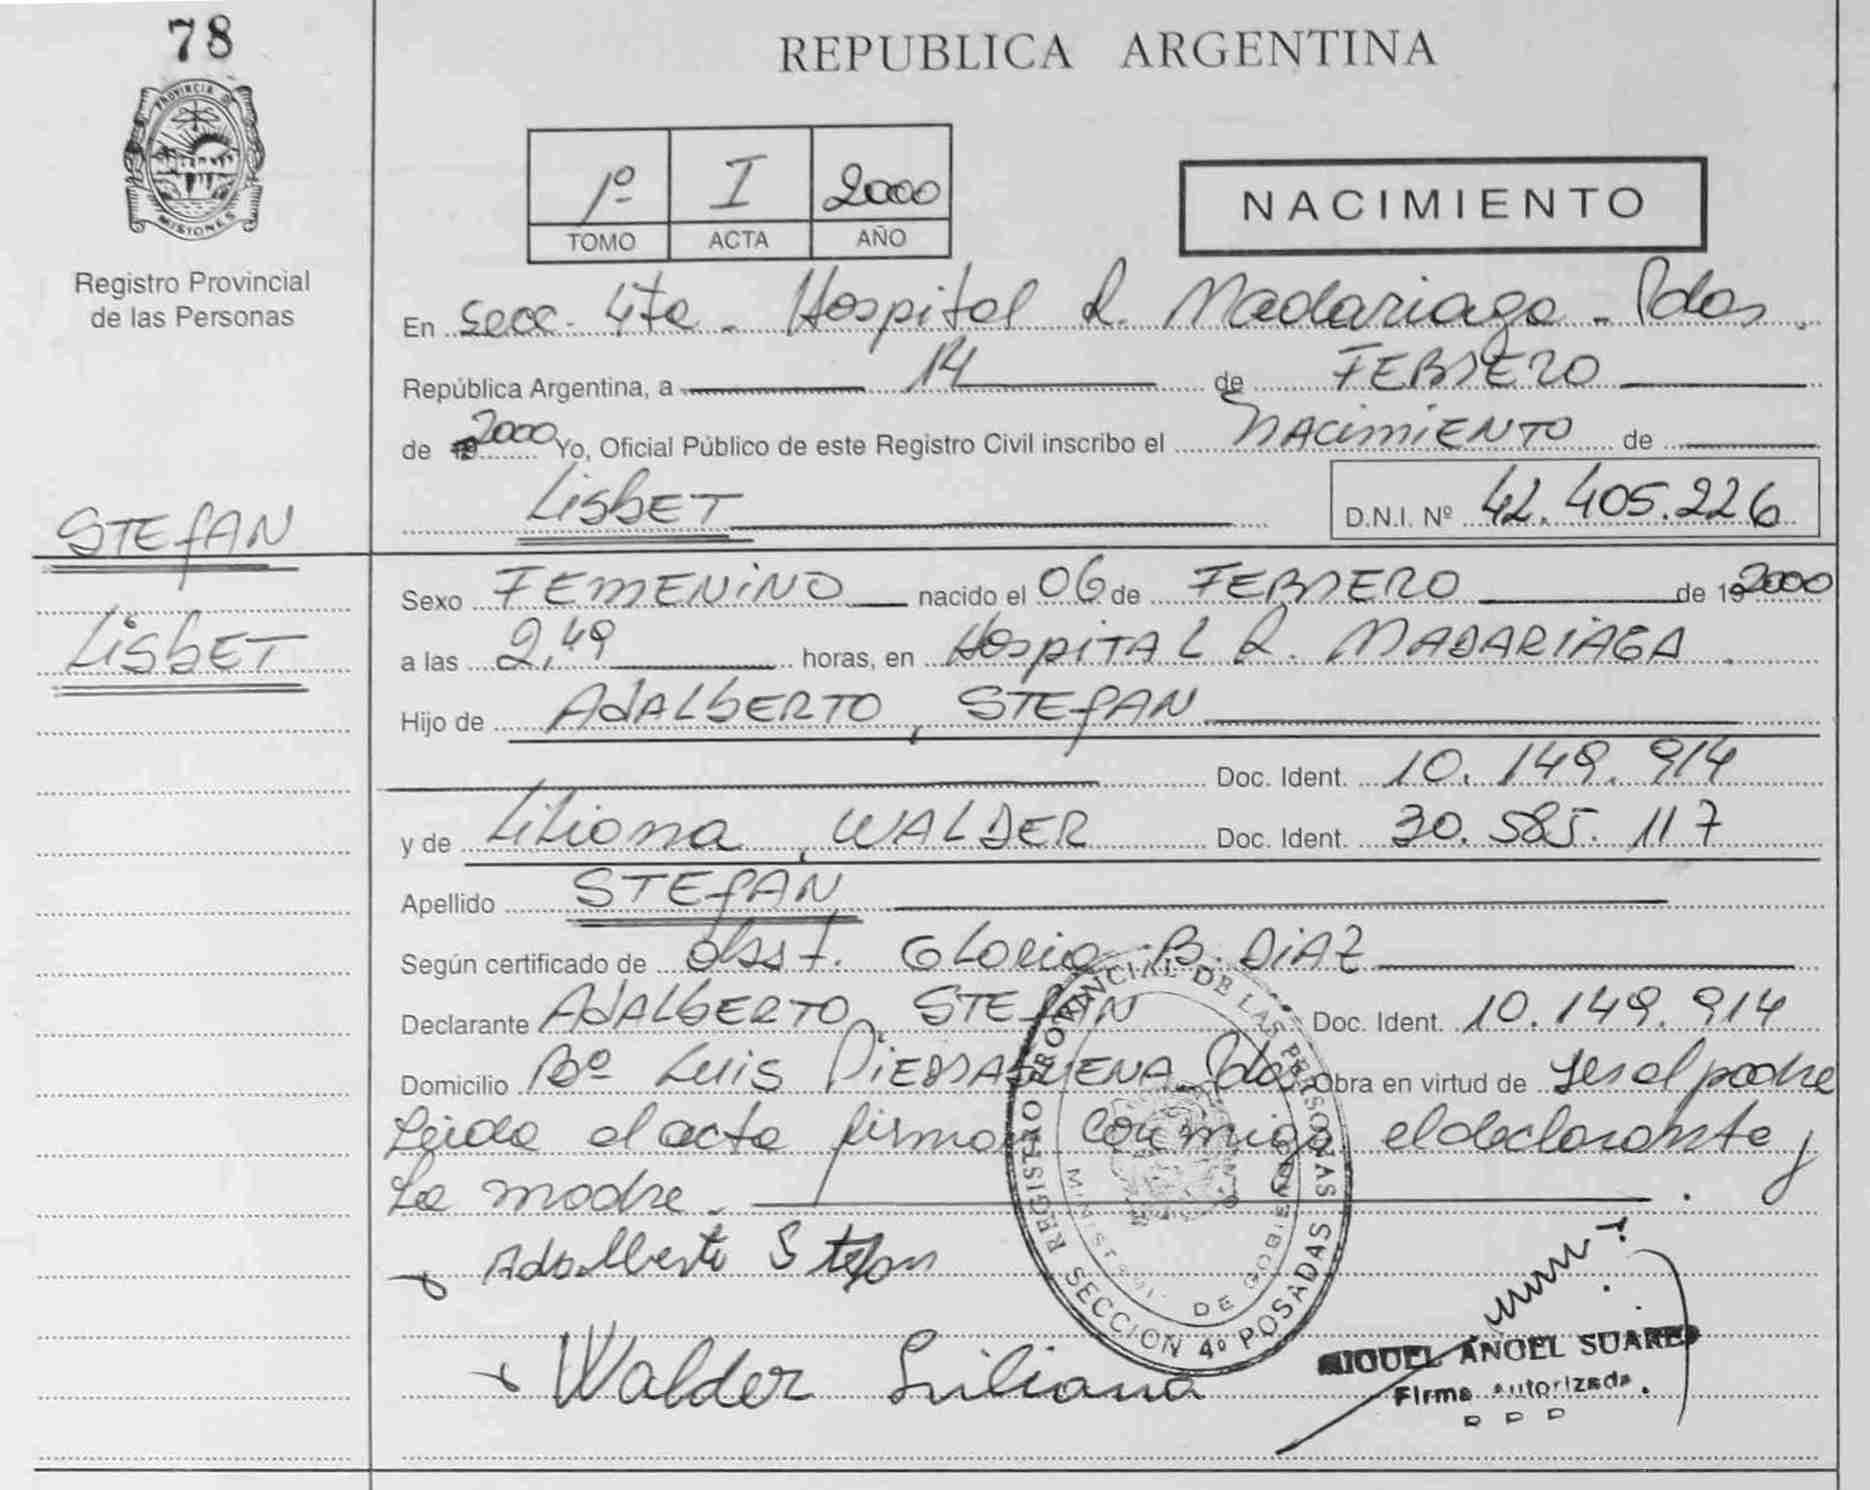 78
REPUBLICA ARGENTINA
PROVINCIA DE MISIONES
Registro Provincial
de las Personas
1º I 2000
TOMO ACTA AÑO
NACIMIENTO
En Secc. 4ta. Hospital R. Madariaga - Pdas.
República Argentina, a 14 de FEBRERO
de 19 2000 Yo, Oficial Público de este Registro Civil inscribo el NACIMIENTO de
LISBET D.N.I. Nº 42.405.226
STEFAN
LISBET
Sexo FEMENINO nacido el 06 de FEBRERO de 19 2000
a las 2,49 horas, en HOSPITAL R. MADARIAGA.
Hijo de ADALBERTO, STEFAN
Doc. Ident. 10.149.914
y de Liliana, WALDER Doc. Ident. 30.585.117
Apellido STEFAN
Según certificado de Obst. Gloria B. DIAZ
Declarante ADALBERTO, STEFAN Doc. Ident. 10.149.914
Domicilio Bº LUIS PIEDRABUENA Pdas Obra en virtud de ser el padre
Leida el acta firman conmigo el declarante y
La madre.
Adalberto Stefan
Walder Liliana
REGISTRO PROVINCIAL DE LAS PERSONAS
SECCION 4º POSADAS
DE GOBIERNO
MIGUEL ANGEL SUAREZ
Firma autorizada